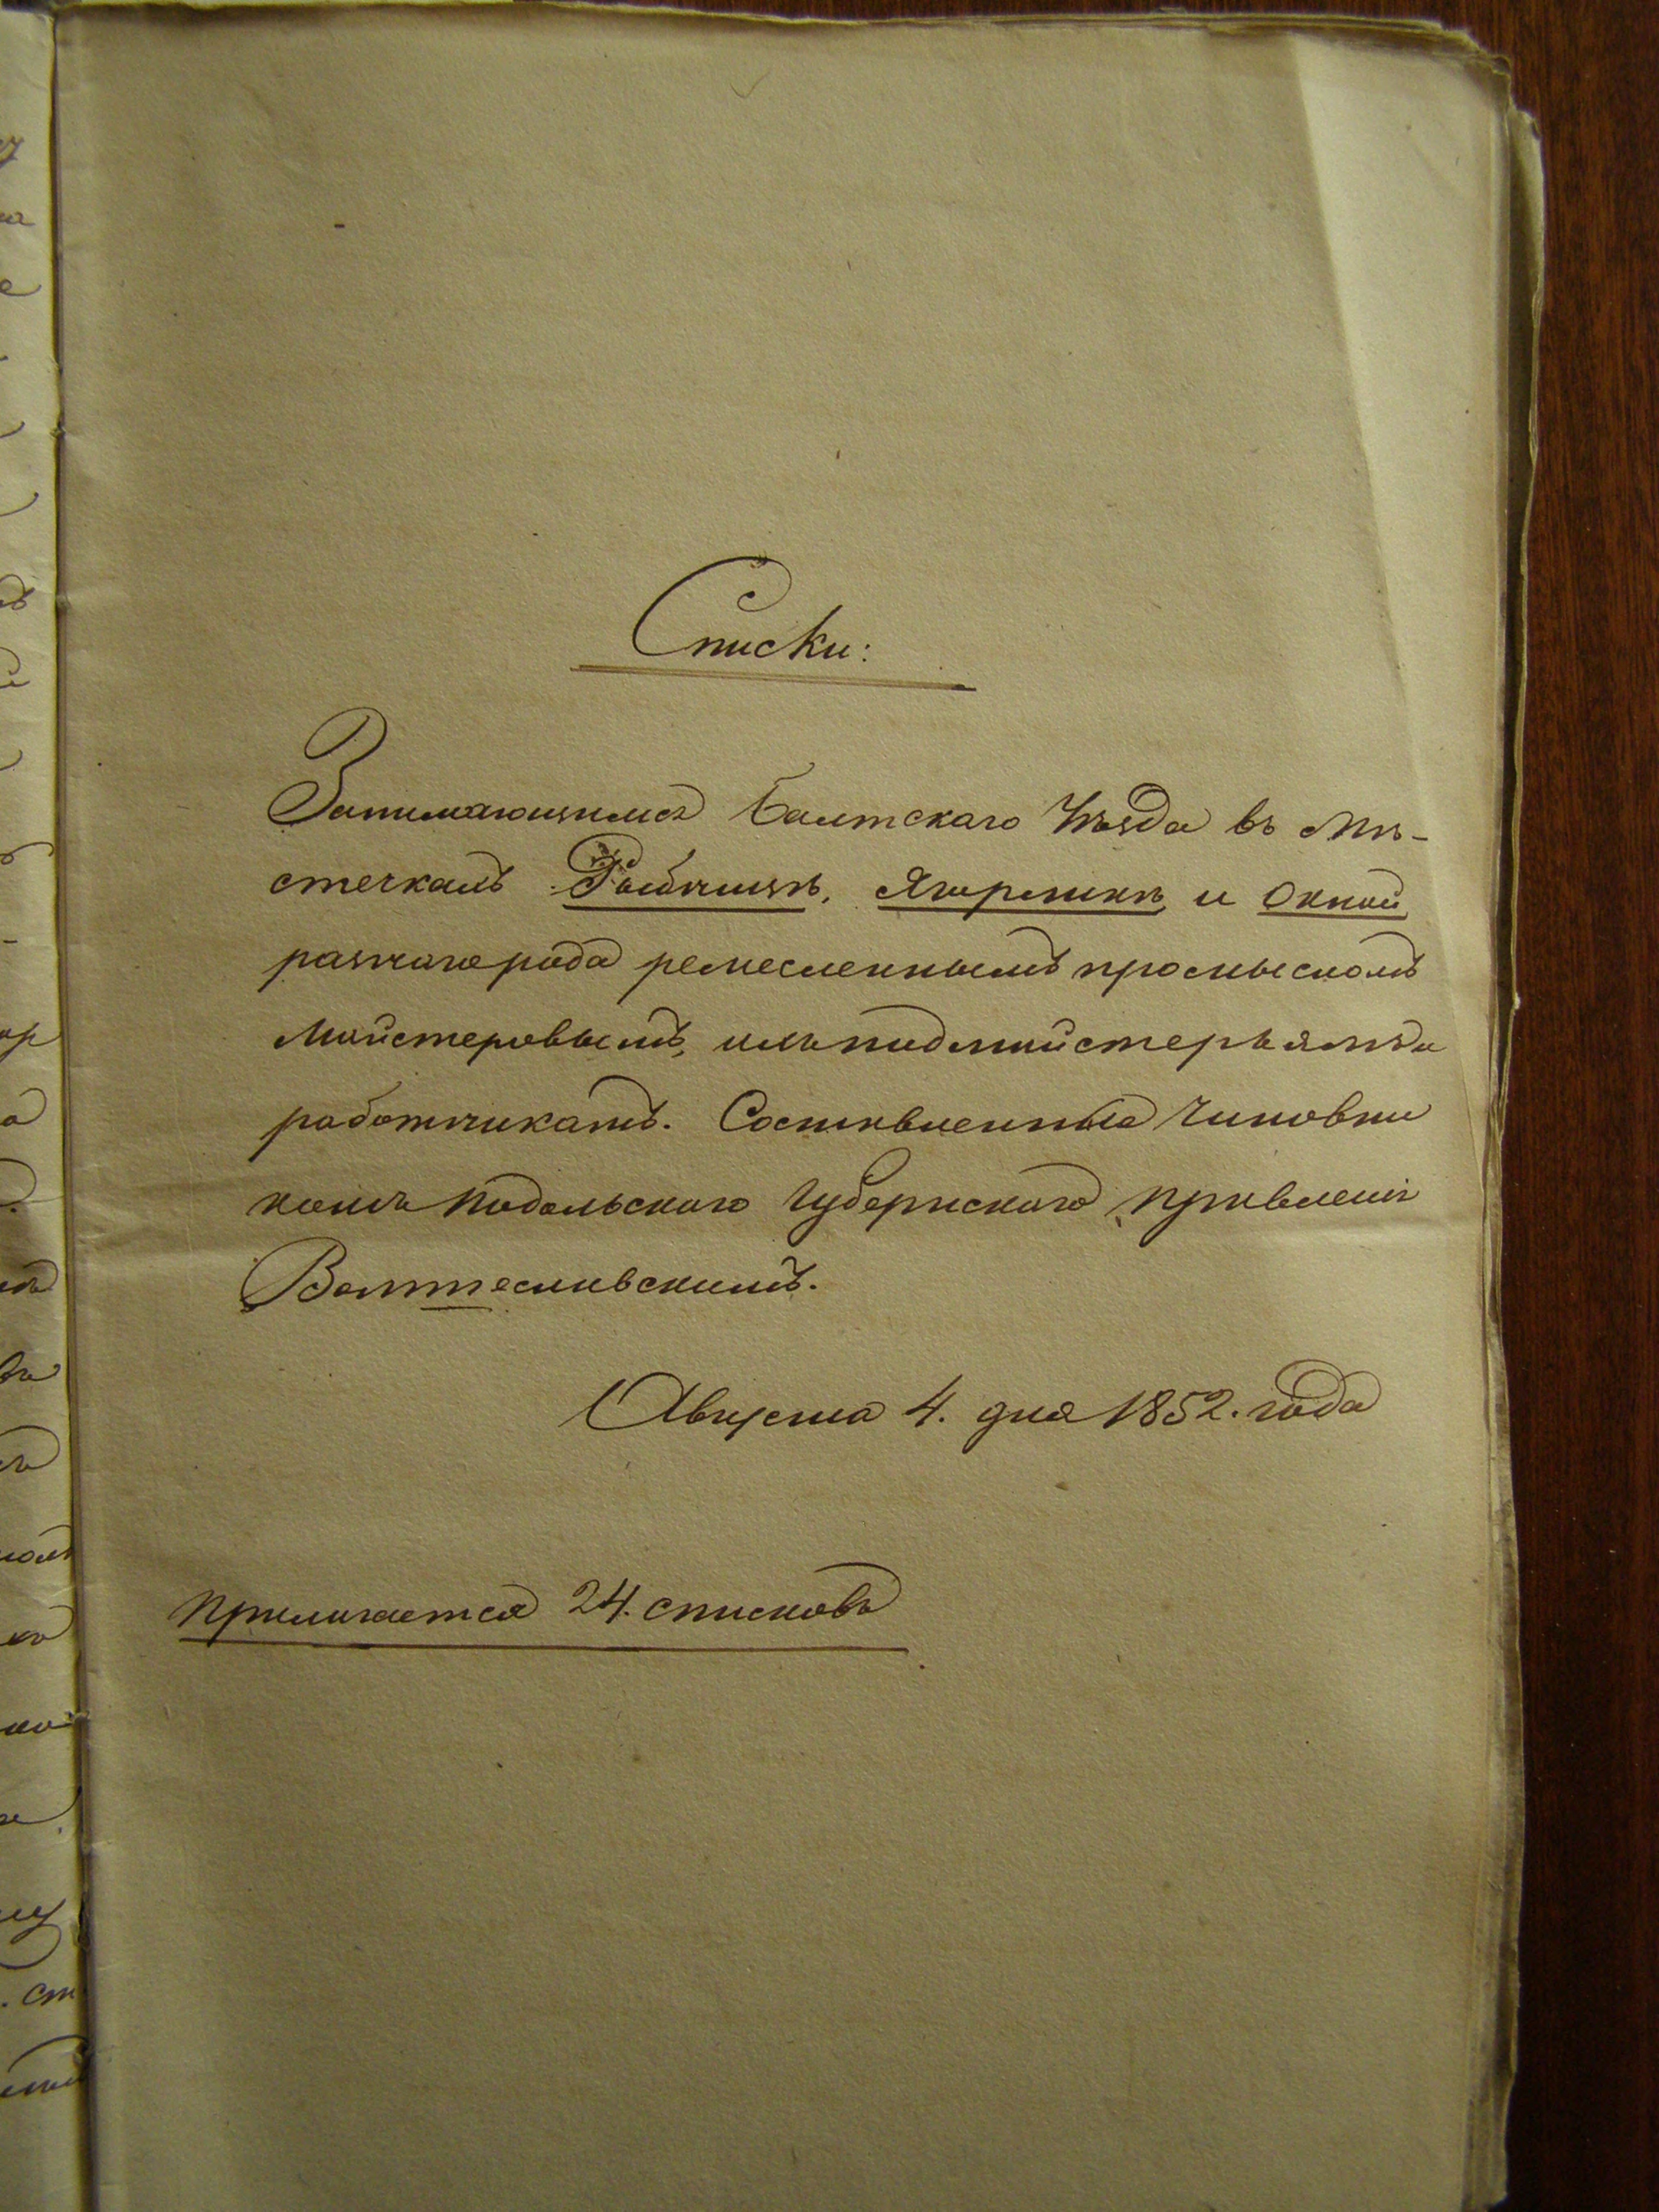 Списки:
Занимающимся Балтскаго Уѣзда въ мѣ-
стечкахъ Рыбницѣ, Ягорлыкѣ и Окной
разнаго рода ремесленнымъ промысломъ
Майстеровымъ, ихъ подмайстерьямъ и
работникамъ. Составленные Чиновни
комъ Подольскаго Губернскаго Правленія
Августа 4. дня 1852. года
Прилагается 24. списковъ